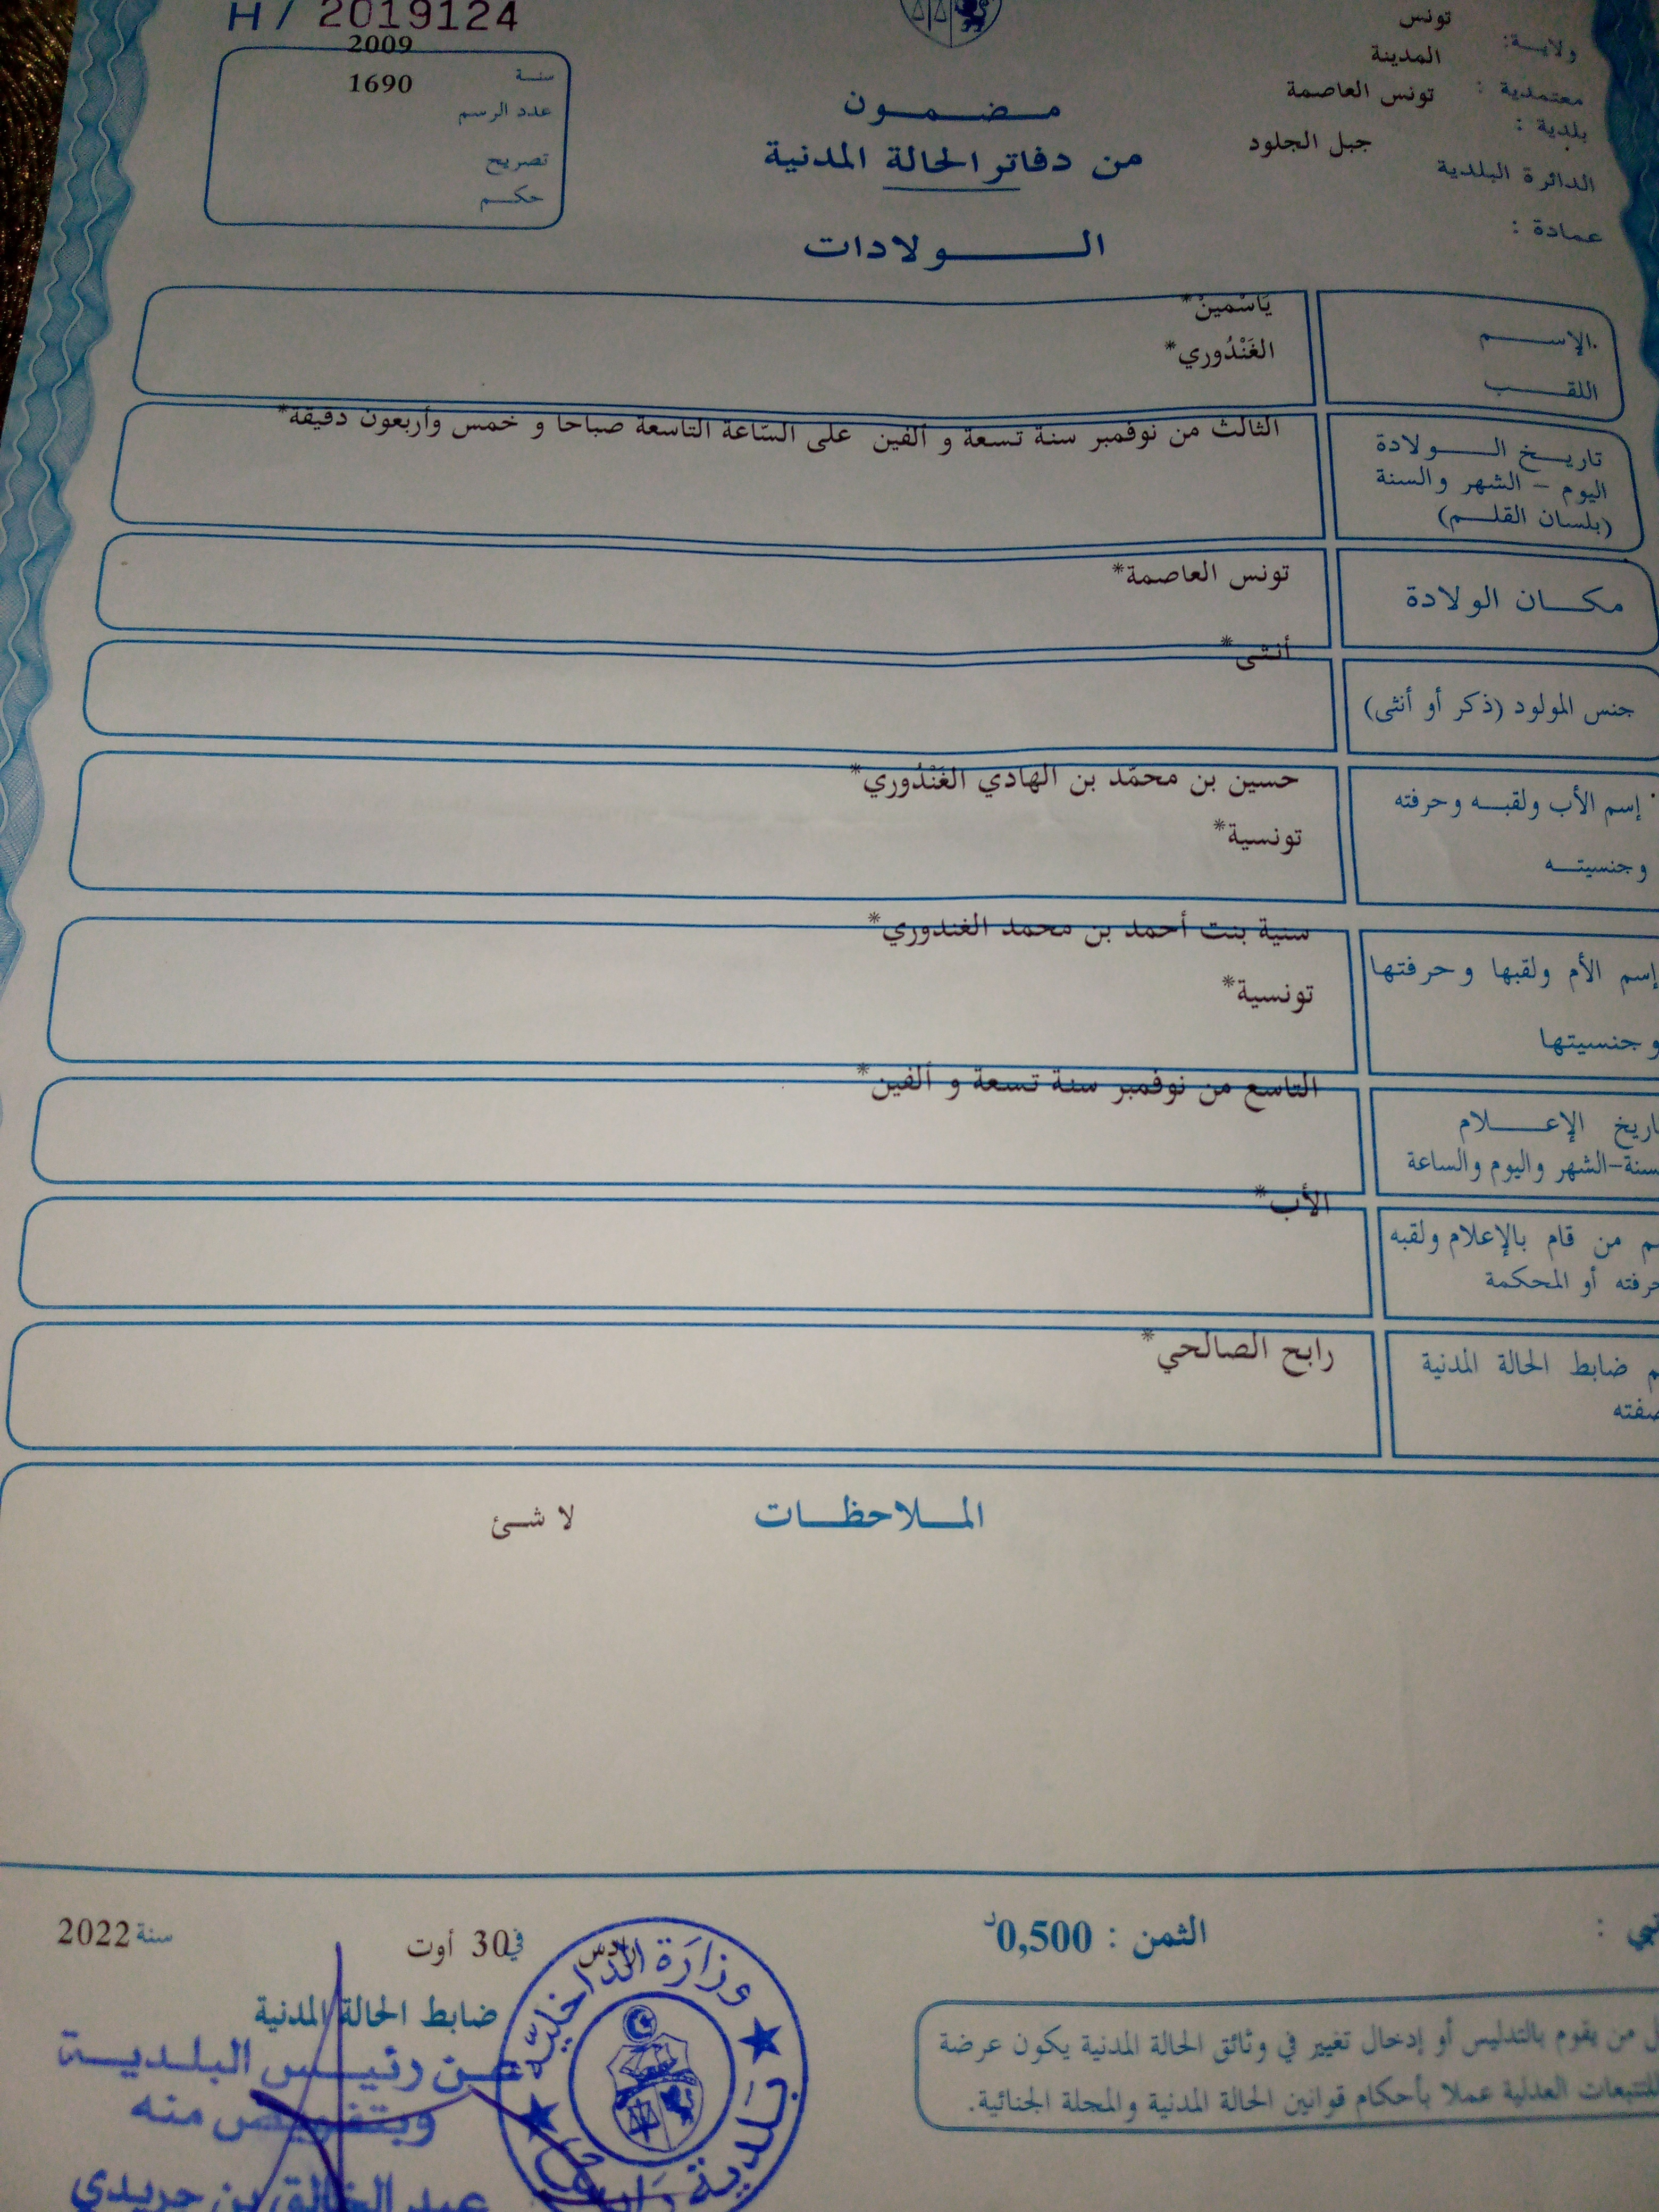 H / 2019124
2009
سنة
1690
عدد الرسم
تصريح
حكم
مضمون
من دفاتر الحالة المدنية
الولادات
تونس
ولاية:
المدينة
معتمدية :
تونس العاصمة
بلدية :
جبل الجلود
الدائرة البلدية
عمادة :
الإسم
يَاسْمينْ*
اللقب
الغَنْدُوري*
تاريخ الولادة
اليوم - الشهر والسنة
(بلسان القلم)
الثالث من نوفمبر سنة تسعة و ألفين على السّاعة التاسعة صباحا و خمس وأربعون دقيقة*
مكان الولادة
تونس العاصمة*
جنس المولود (ذكر أو أنثى)
أنثى*
إسم الأب ولقبه وحرفته
وجنسيته
حسين بن محمّد بن الهادي الغَنْدُوري*
تونسية*
إسم الأم ولقبها وحرفتها
وجنسيتها
سنية بنت أحمد بن محمد الغندوري*
تونسية*
اريخ الإعلام
سنة-الشهر واليوم والساعة
التاسع من نوفمبر سنة تسعة و ألفين*
م من قام بالإعلام ولقبه
حرفته أو المحكمة
الأب*
م ضابط الحالة المدنية
صفته
رابح الصالحي*
الملاحظات
لا شئ
الثمن : 0,500د
رادس
في 30 أوت
سنة 2022
ضابط الحالة المدنية
عن رئيس البلدية
وبتفويض منه
عبد الخالق بن جريدي
وزارة الداخلية
بلدية رادس
ل من يقوم بالتدليس أو إدخال تغيير في وثائق الحالة المدنية يكون عرضة
للتتبعات العدلية عملا بأحكام قوانين الحالة المدنية والمجلة الجنائية.